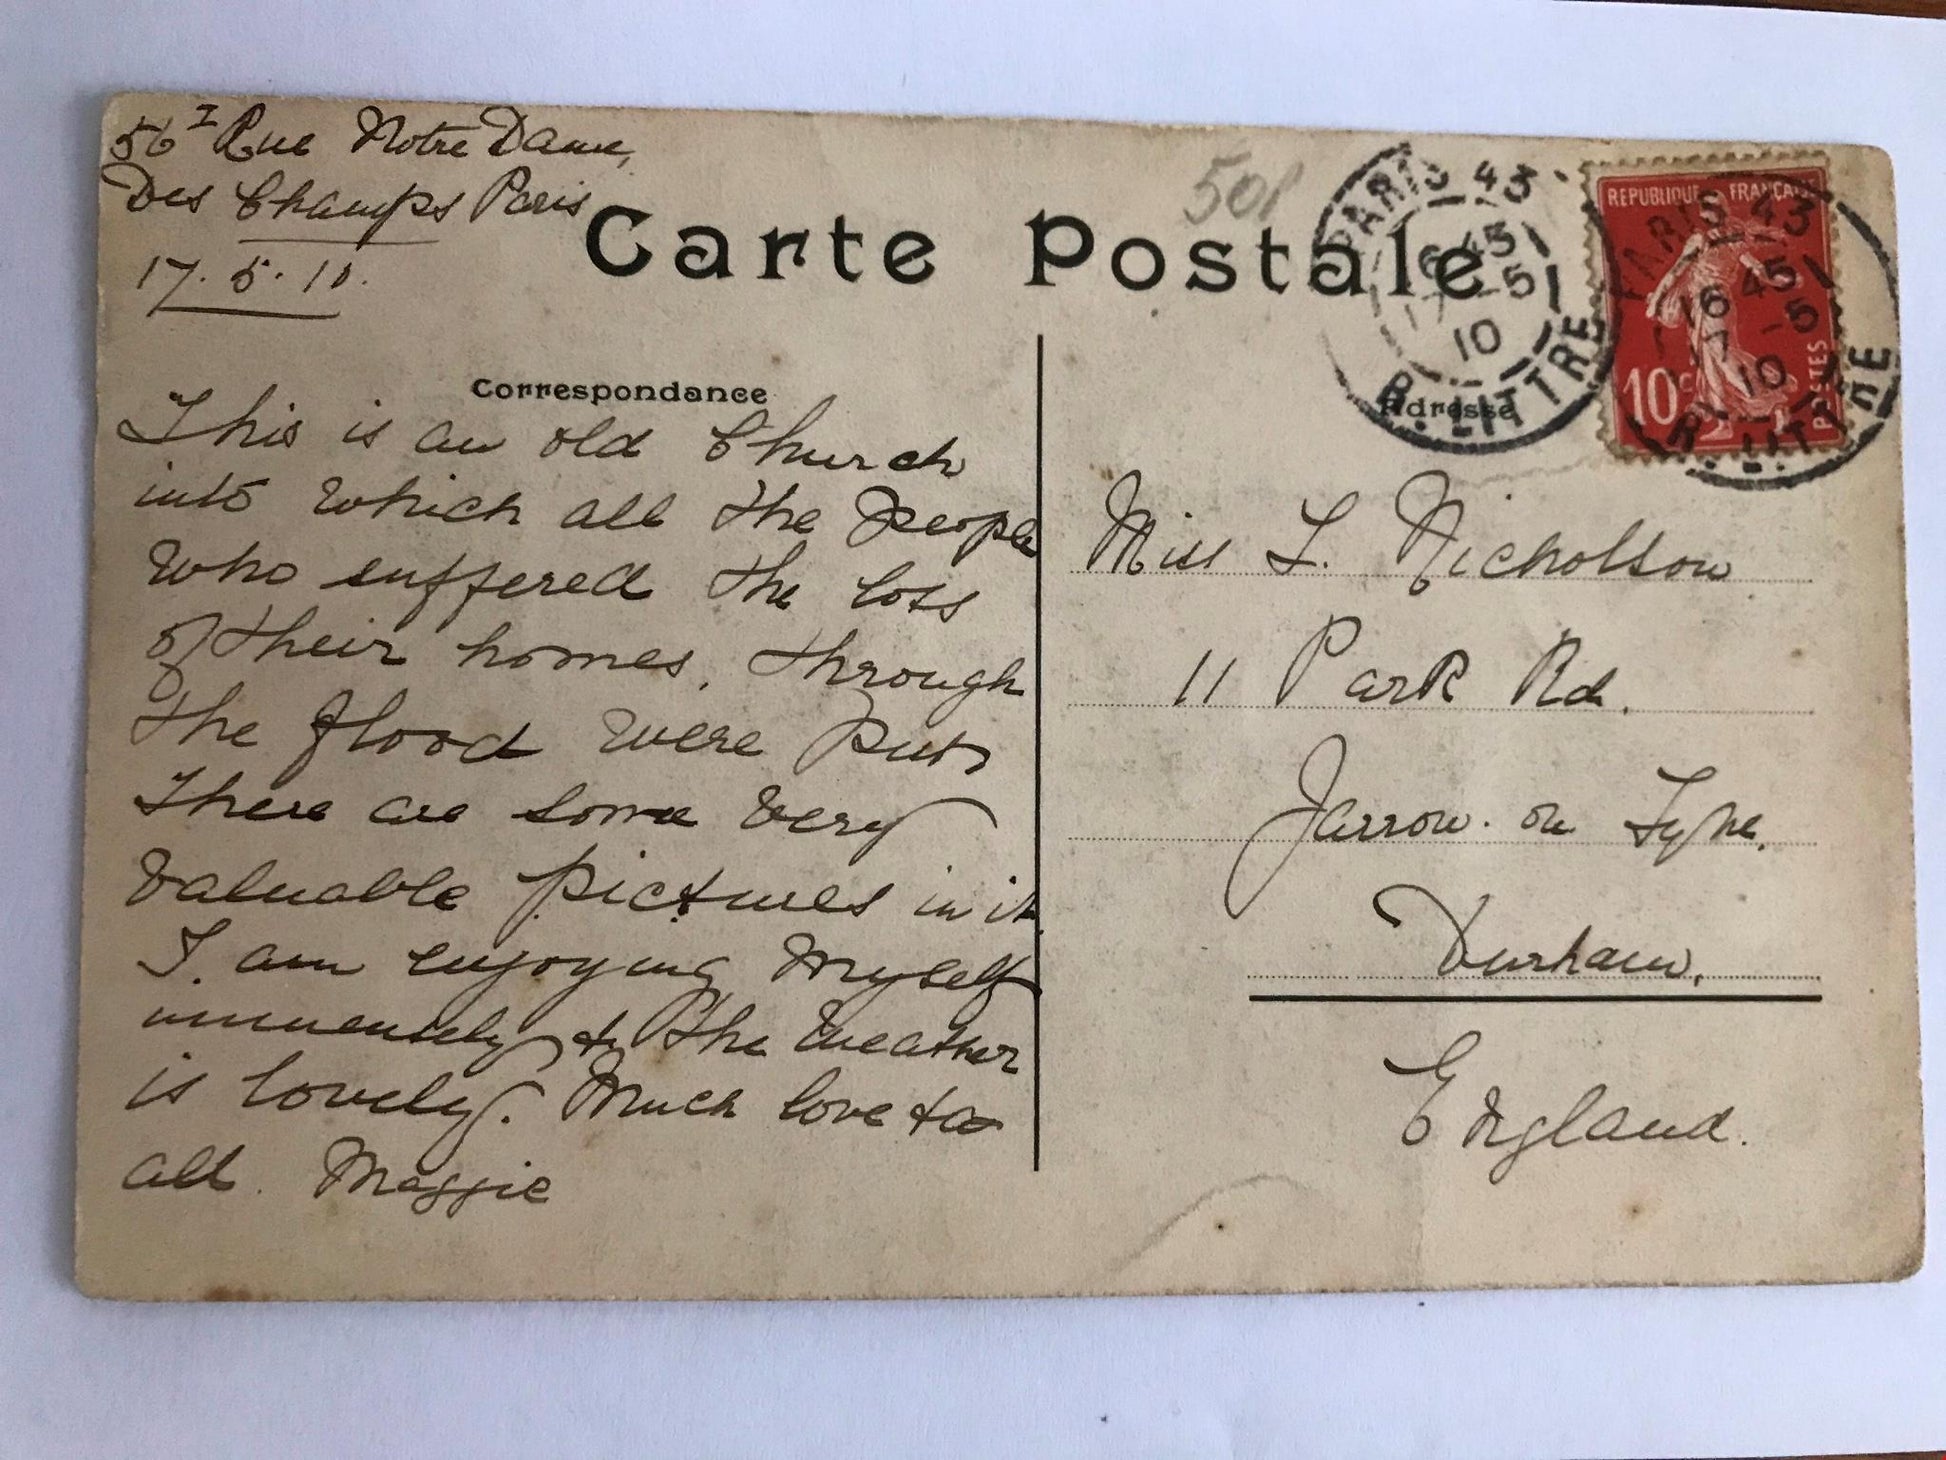 56 I Rue Notre Dame,
Des Champs Paris
17. 5. 10.
50p
Carte Postale
Correspondance
This is an old Church
into which all the People
who suffered the loss
of their homes, through
the flood were put,
There are some very
valuable pictures in it.
I am enjoying myself
immensely & the weather
is lovely. Much love to
all. Maggie
PARIS 43
16 45
17 -5
10
R. LITTRE
REPUBLIQUE FRANÇAISE
10c
POSTES
PARIS 43
16 45
17 -5
10
R. LITTRE
Adresse
Miss L. Nicholson
11 Park Rd.
Jarrow. on Tyne.
Durham,
England.